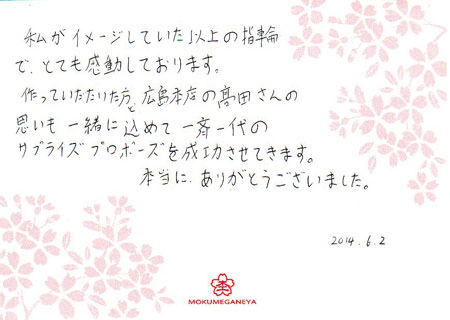 私がイメージしていた以上の指輪
で、とても感動しております。
作っていただいた方と広島本店の髙田さんの
思いも一緒に込めて一斉一代の
サプライズプロポーズを成功させてきます。
本当に、ありがとうございました。
2014.6.2
MOKUMEGANEYA